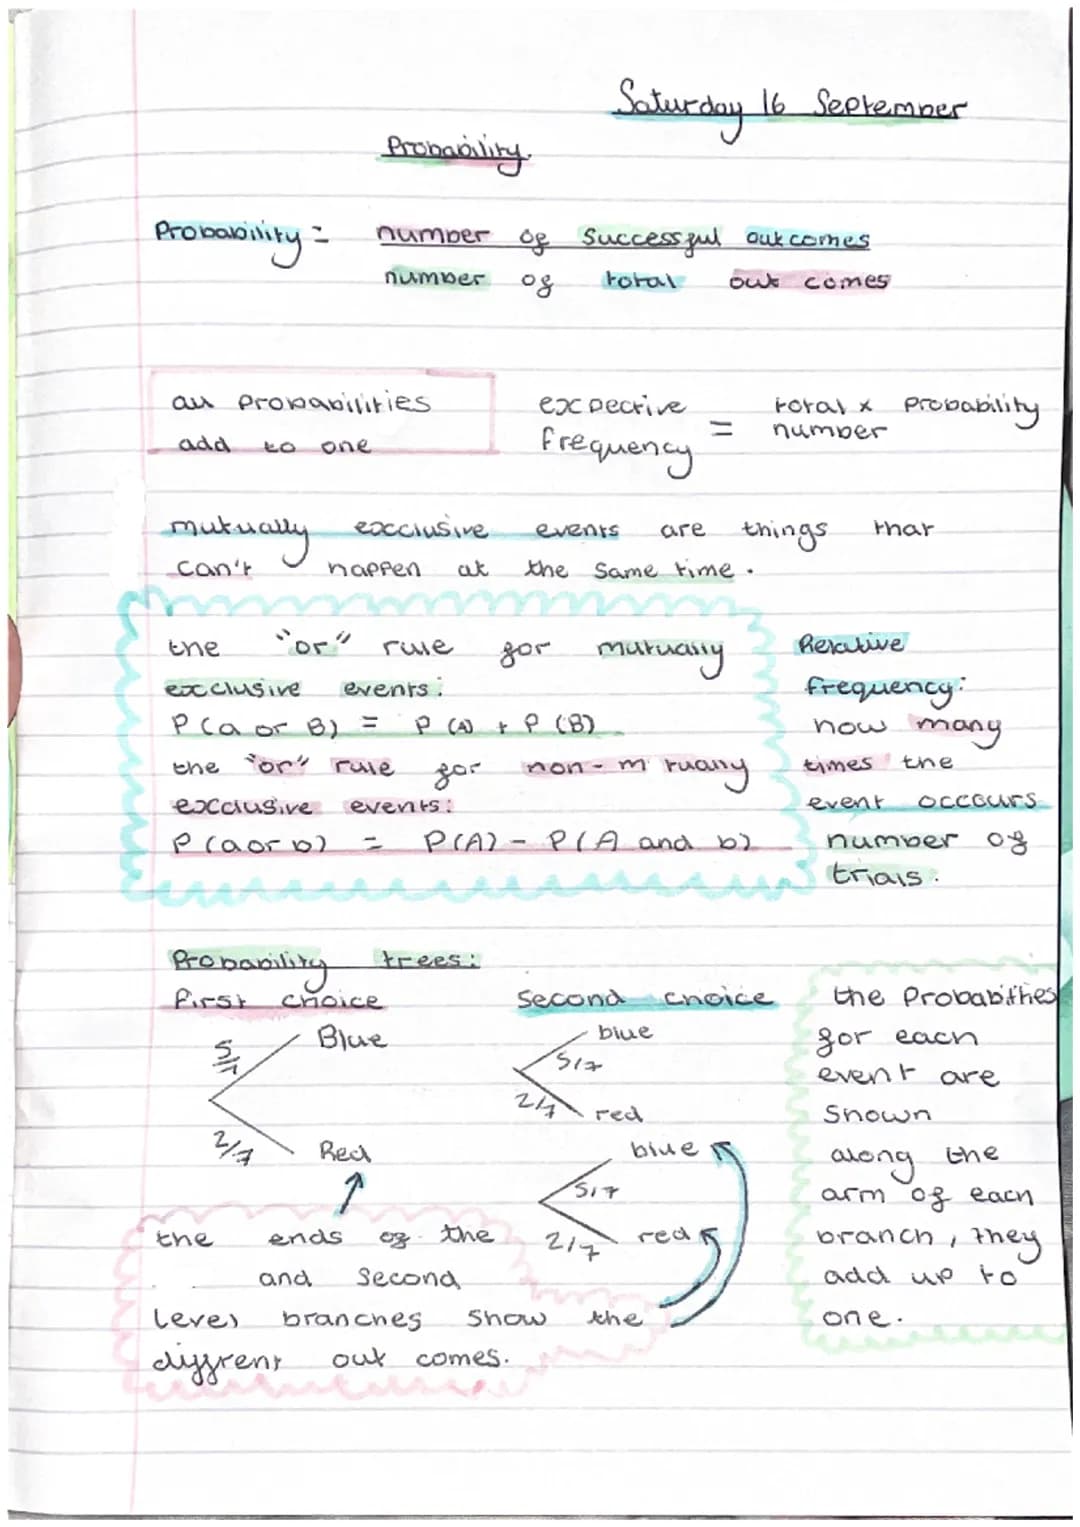 Saturday 16 September
Probability.
Probability = number of successful outcomes
number of total out comes
all probabilities
add to one
expective
frequency
= total x probability
number
mutually exclusive events are things that
can't happen at the same time.
the "or" rule for mutually
exclusive events:
P(a or B) = P(A) + P(B)
the "or" rule for non-m tually
exclusive events:
P(a or b) = P(A) - P(A and b)
Relative
frequency:
how many
times the
event occours
number of
trials.
Probability trees:
first choice
5/7
Blue
2/7
Red
second choice
blue
5/7
2/7
red
blue
5/7
2/7
red
the ends of the
and second
level branches show the
diffrent out comes.
the Probabilties
for each
event are
shown
along the
arm of each
branch, they
add up to
one.